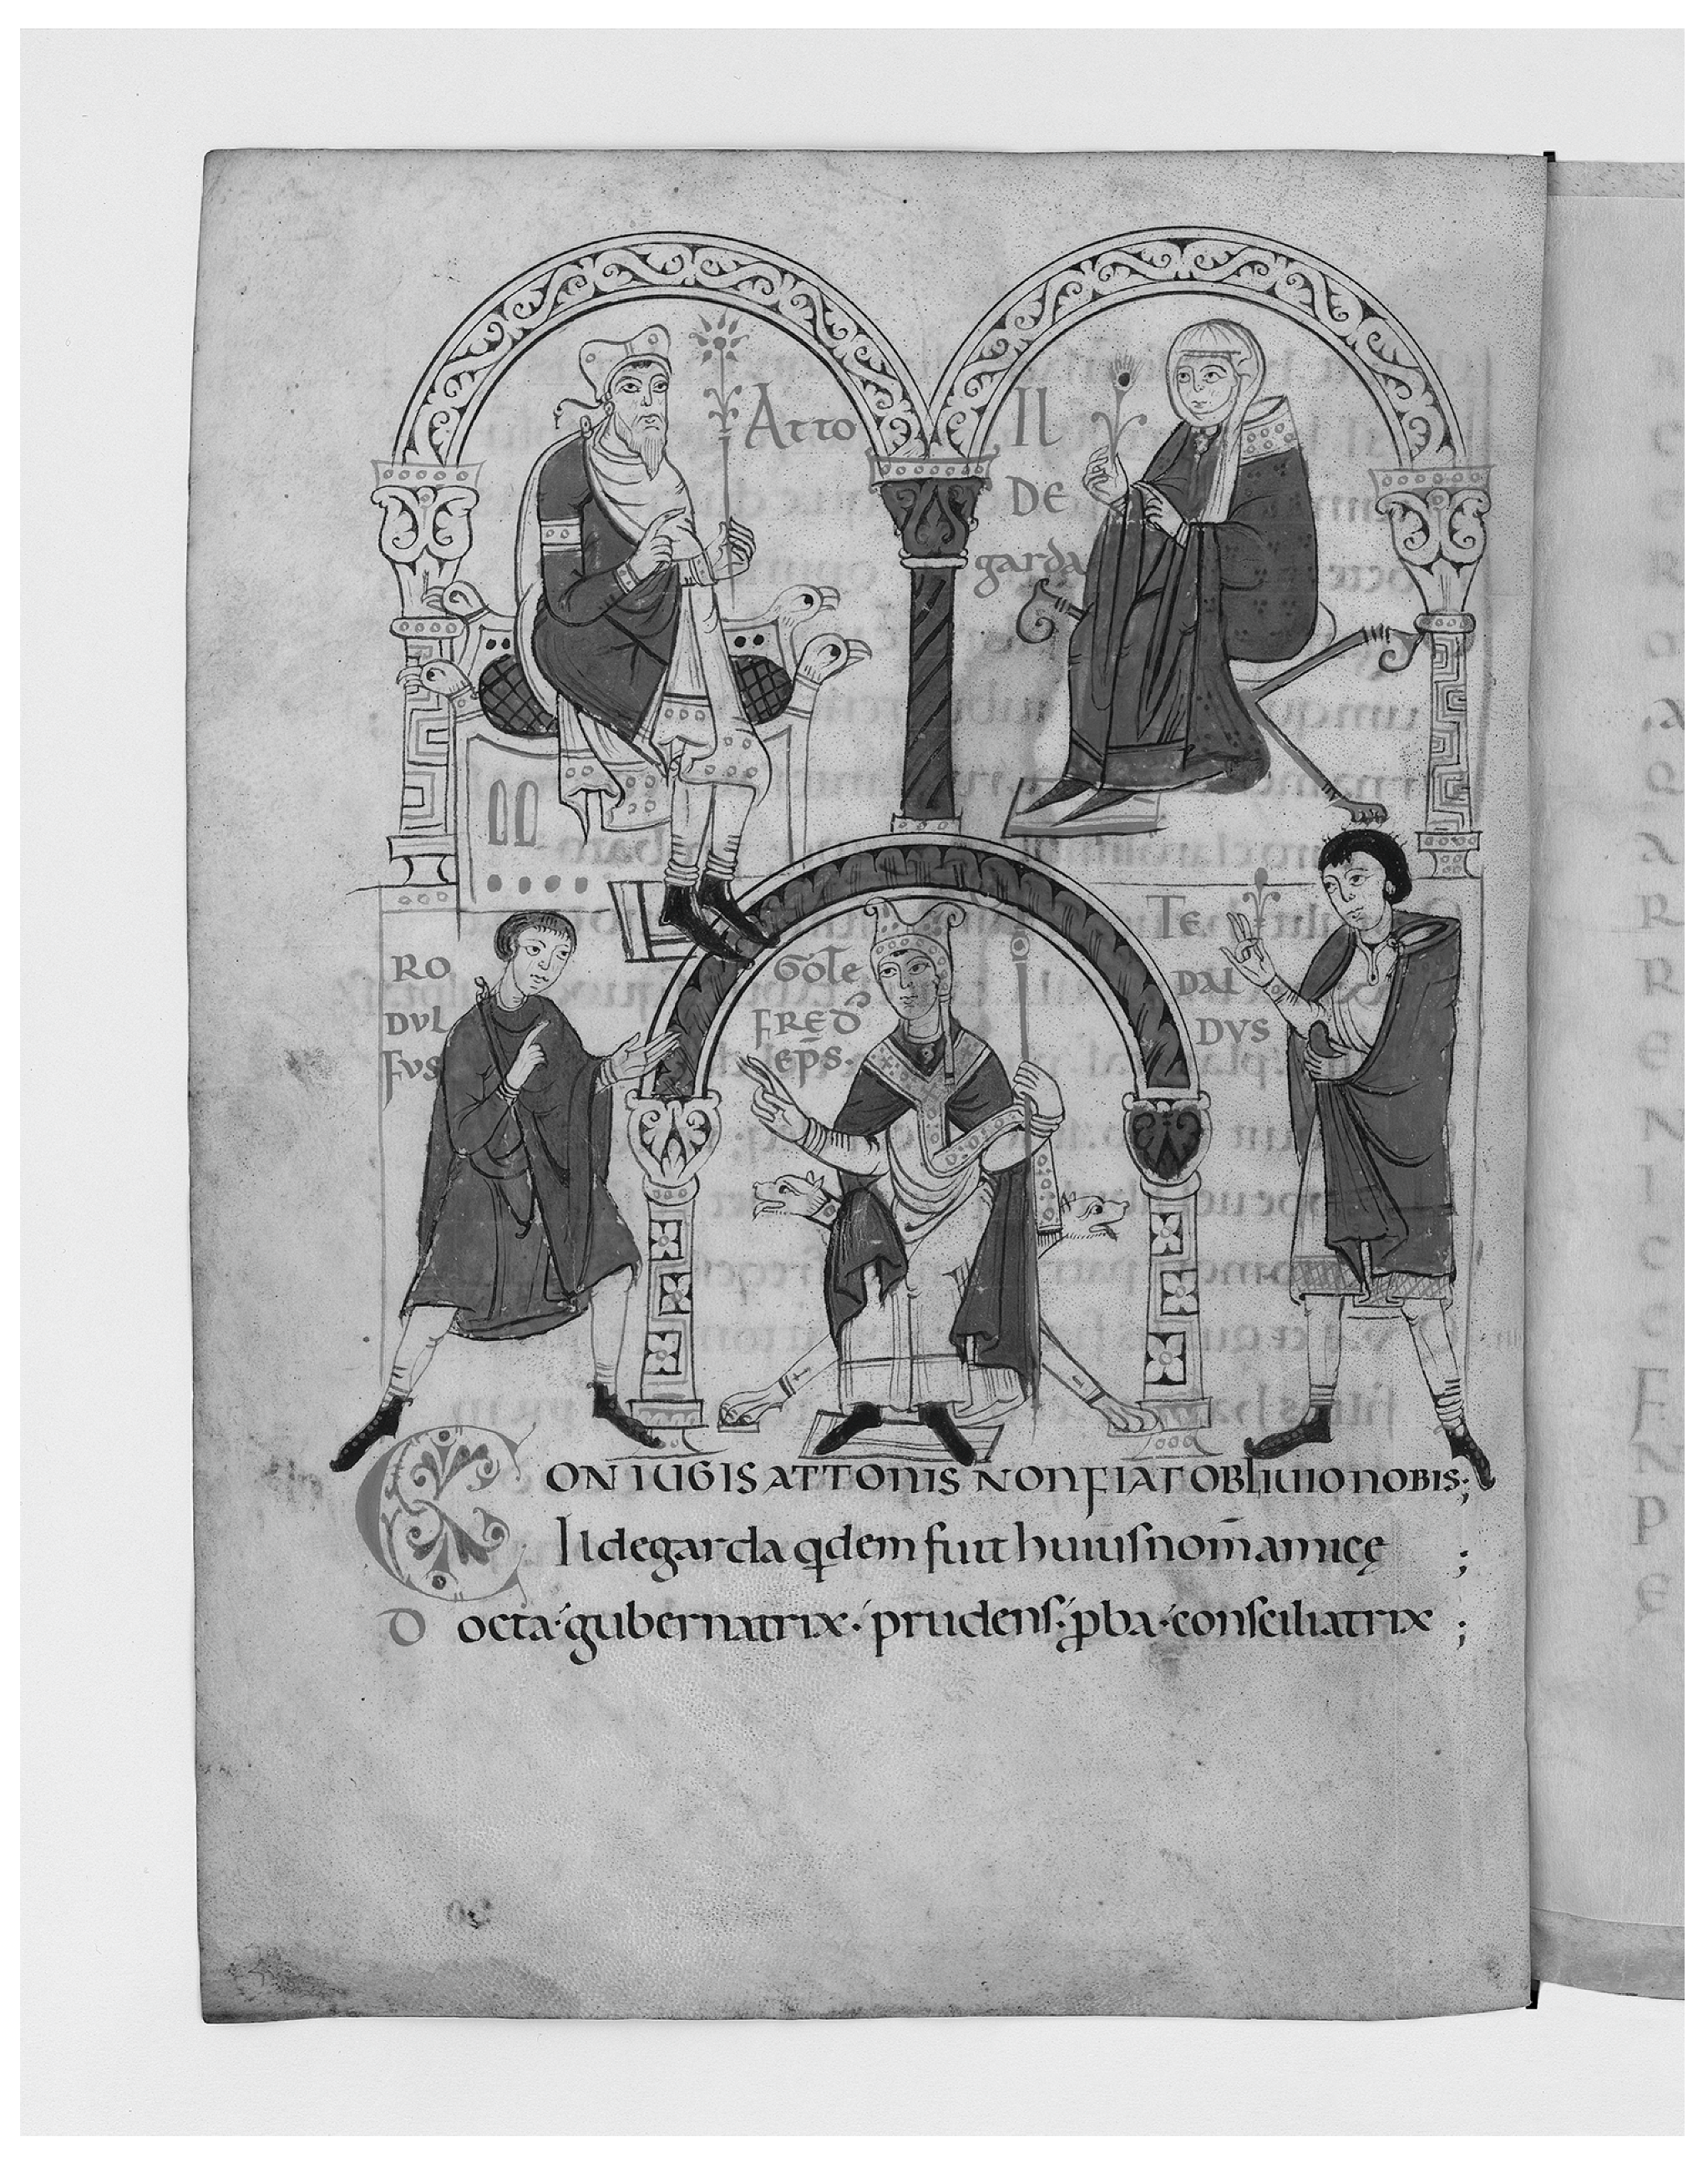 Atto
Il
DE
garda
RO
DVL
FVS
GOTE
FRED
eps.
TE
DAL
DVS
CONIUGIS ATTONIS NON FIAT OBLIUIO NOBIS;
Ildegarda qdem fuit huius nom̄ amicę ;
Docta· gubernatrix· prudens· ꝓba· consciliatrix ;